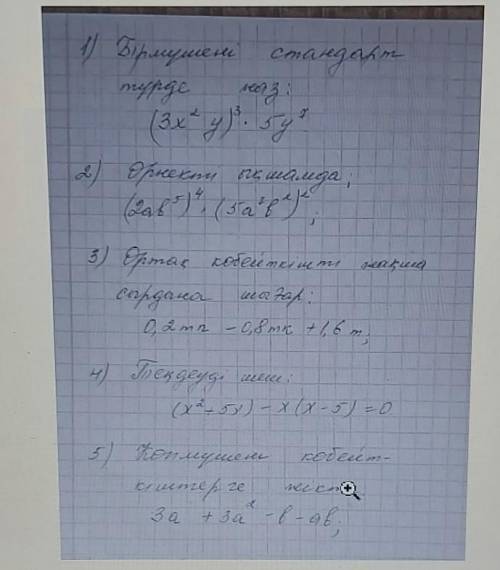 1) Бірмүшені стандарт
түрде жаз:
(3x² y)³ · 5y⁷
2) Өрнекті ықшамда;
(2ab⁵)⁴ · (5a²b²)²;
3) Ортақ көбейткішті жақша
сыртына шығар:
0,2mn - 0,8mk + 1,6m;
4) Теңдеуді шеш:
(x² + 5x) - x(x - 5) = 0
5) Көпмүшені көбейт-
кіштерге жікте
3a + 3a² - b - ab;